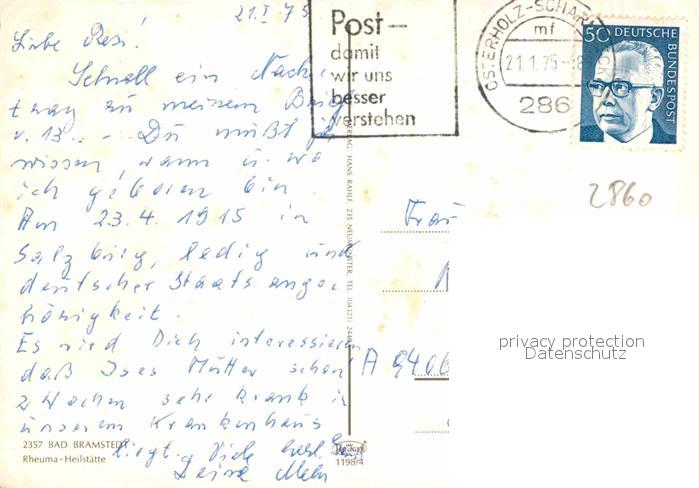 21.I.75
Liebe Resi!
Schnell ein Nach-
trag zu meinem Brief
v. 13. - Du mußt
wissen, wann u. wo
ich geboren bin.
Am 23.4.1915 in
Salzburg, ledig und
deutscher Staatsange-
hörigkeit.
Es wird Dich interessieren
daß Ises Mutter schon
2 Wochen sehr krank i
unserem Krankenhaus
liegt. Viele herzl.
Deine
Post-
damit
wir uns
besser
verstehen
OSTERHOLZ-SCHARM
mf
21.1.75-8
286
50 DEUTSCHE
BUNDESPOST
2860
Frau
A 9406
privacy protection
Datenschutz
VERLAG HANS RAHLF, 235 NEUMÜNSTER, TEL. (04321)
2357 BAD BRAMSTEDT
Rheuma-Heilstätte
KRÜGER
1198/4